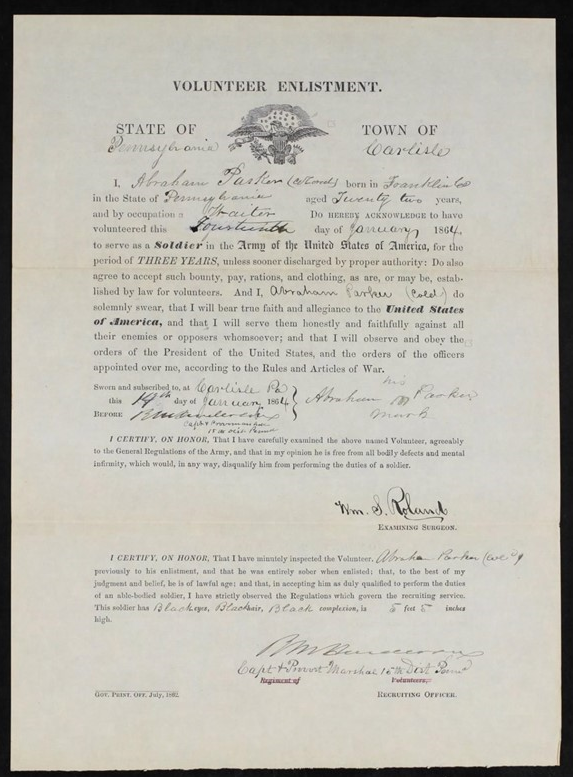 VOLUNTEER ENLISTMENT.
STATE OF TOWN OF
Pennsylvania Carlisle
I, Abraham Parker (colored) born in Franklin Co
in the State of Pennsylvania aged Twenty two years,
and by occupation a Waiter Do HEREBY ACKNOWLEDGE to have
volunteered this Fourteenth day of January, 1864,
to serve as a Soldier in the Army of the United States of America, for the
period of THREE YEARS, unless sooner discharged by proper authority: Do also
agree to accept such bounty, pay, rations, and clothing, as are, or may be, estab-
lished by law for volunteers. And I, Abraham Parker (Cold) do
solemnly swear, that I will bear true faith and allegiance to the United States
of America, and that I will serve them honestly and faithfully against all
their enemies or opposers whomsoever; and that I will observe and obey the
orders of the President of the United States, and the orders of the officers
appointed over me, according to the Rules and Articles of War.
Sworn and subscribed to, at Carlisle Pa
this 14th day of January 1864
BEFORE
Capt & Provost Mar
15th Dist Penna
his
Abraham Parker
mark
I CERTIFY, ON HONOR, That I have carefully examined the above named Volunteer, agreeably
to the General Regulations of the Army, and that in my opinion he is free from all bodily defects and mental
infirmity, which would, in any way, disqualify him from performing the duties of a soldier.
Wm. S. Roland
EXAMINING SURGEON.
I CERTIFY, ON HONOR, That I have minutely inspected the Volunteer, Abraham Parker (Cold)
previously to his enlistment, and that he was entirely sober when enlisted; that, to the best of my
judgment and belief, he is of lawful age; and that, in accepting him as duly qualified to perform the duties
of an able-bodied soldier, I have strictly observed the Regulations which govern the recruiting service.
This soldier has Black eyes, Black hair, Black complexion, is 5 feet 5 inches
high.
Capt & Provost Marshal 15th Dist Penna
Regiment of Volunteers,
RECRUITING OFFICER.
GOV. PRINT. OFF. July, 1862.